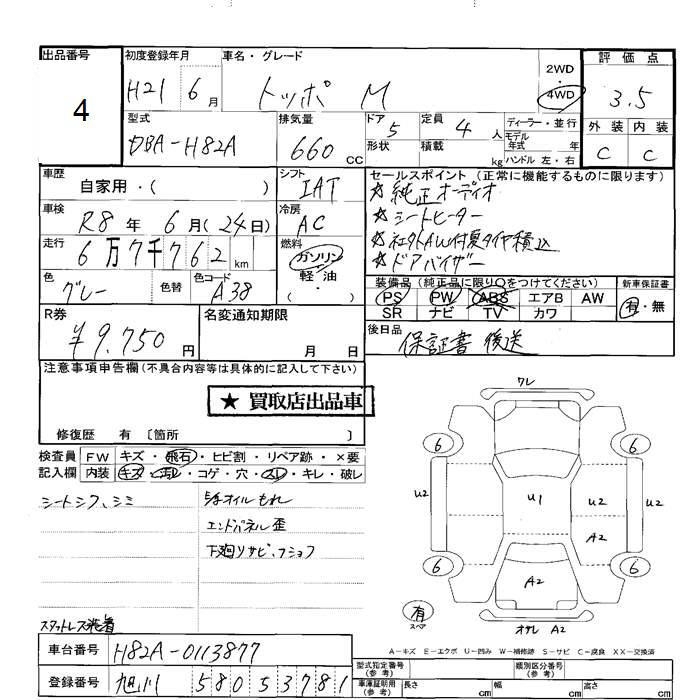 出品番号 初度登録年月 車名・グレード 2WD・4WD 評価点
4 H21 6月 トッポ M 3.5
型式 排気量 ドア 5 定員 4人 ディーラー・並行 外装 内装
DBA-H82A 660cc 形状 積載 kg モデル年式 年 ハンドル 左・右 C C
車歴 シフト セールスポイント (正常に機能するものに限ります)
自家用・( ) IAT ☆純正オーディオ
車検 冷房 ☆シートヒーター
R8年 6月(24日) AC ☆社外AW付夏タイヤ積込
走行 燃料 ☆ドアバイザー
6万7千762km ガソリン 軽油 ( )
色 色替 色コード 装備品 (純正品に限り○をつけてください) 新車保証書
グレー A38 PS PW ABS エアB AW 有・無
SR ナビ TV カワ
R券 名変通知期限 後日品
¥9,750円 月 日 保証書 後送
注意事項申告欄(不具合内容等は具体的に記入して下さい)
★ 買取店出品車
修復歴 有 〔箇所 〕
検査員記入欄 FW キズ・飛石・ヒビ割・リペア跡・×要
内装 キズ・汚レ・コゲ・穴・スレ・キレ・破レ
シートシワ、シミ
オイルもれ
エンドパネル歪
下廻りサビ、フショク
スタットレス装着
ワレ
6 6
U2 U1 U2 U2
A2
6 6
A2
有 スペア
A2
A-キズ E-エクボ U-凹み W-補修跡 S-サビ C-腐食 XX-交換済
車台番号 H82A-0113877
登録番号 旭川 580 5 3781
型式指定番号(参考) 類別区分番号(参考)
車庫証明用(参考) 長さ cm 幅 cm 高さ cm